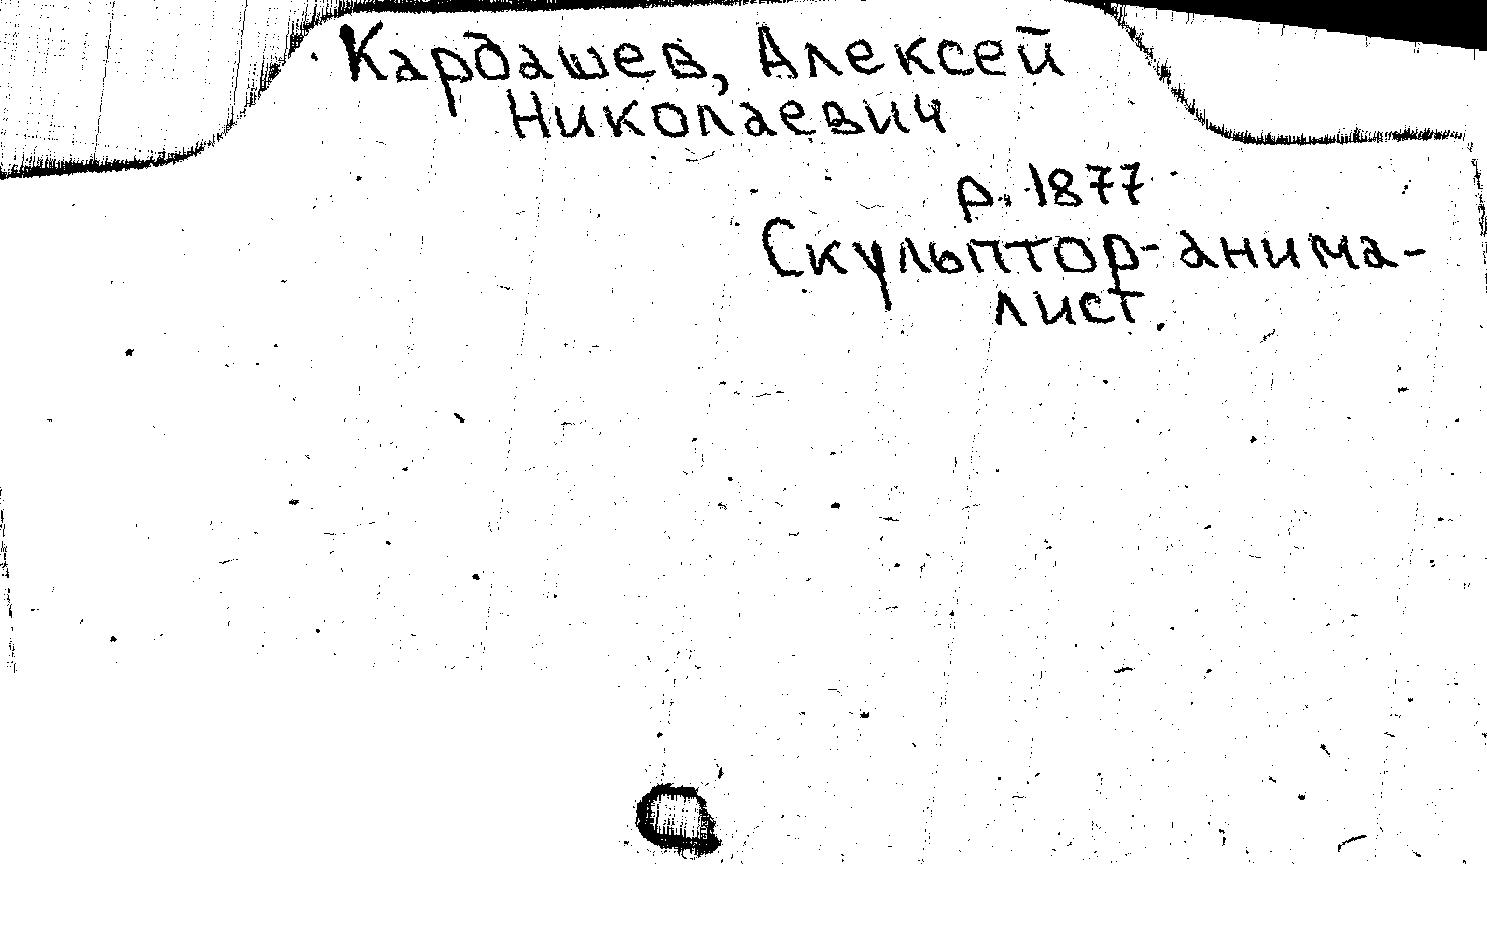 Кардашев, Алексей
Николаевич
р. 1877
Скульптор-анима-
лист.